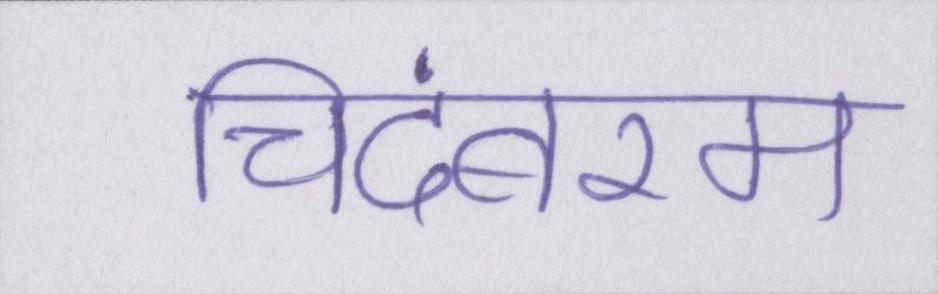 चिदंबरम